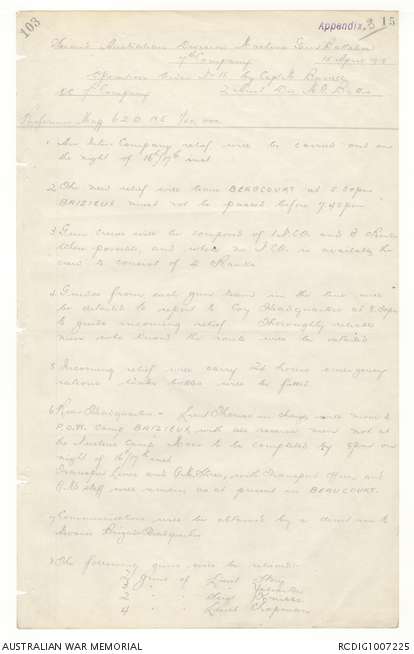 103
Appendix. 3 15
Second Australian Division Machine Gun Battalion
7th Company
15 April 1918
Operation Order No 11 by Capt
OC 7th Company
2 Aust Div M.G. Bn
Reference Map 62 D. N.E. 1/20,000
1 An Inter Company relief will be carried out on
the night of 16th/17th inst
2 The new relief will leave BEAUCOURT at 5.30pm
BRIZIEUX must not be passed before 7.45pm
3 Gun crews will be composed of 1 N.C.O. and 3 Ranks
when possible, and where no N.C.O. is available the
crew to consist of 4 Ranks
4 Guides from each gun team in the line will
be detailed to report to Coy Headquarters at 8.30pm
to guide incoming relief Thoroughly reliable
men who know the route will be detailed
5 Incoming relief will carry 24 hours emergency
rations water bottles will be filled
6 Rear Headquarters Lieut Thomas in charge will move to
P.O.W. Camp BRIZIEUX, with all reserve men not at
the Nucleus Camp Move to be completed by 9pm on
night of 16th/17th inst
Transport Lines and Q.M. Store, with Transport Men and
Q.M. staff will remain as at present in BEAUCOURT.
7 Communications will be obtained by a direct wire to
Advance Brigade Headquarters
8 The following guns will be relieved
Guns of Lieut
2 " "
4 " " Lieut Chapman
AUSTRALIAN WAR MEMORIAL
RCDIG1007225